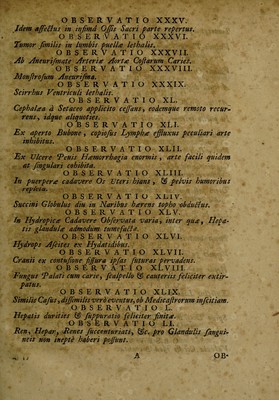 OBSERVATIO XXXV.
Idem affectus in infimâ Ossis Sacri parte repertus.
OBSERVATIO XXXVI.
Tumor similis in lumbis puellæ lethalis.
OBSERVATIO XXXVII.
Ab Aneurismate Arteriæ Aortæ Costarum Caries.
OBSERVATIO XXXVIII.
Monstrosum Aneurisma.
OBSERVATIO XXXIX.
Scirrhus Ventriculi lethalis.
OBSERVATIO XL.
Cephalæa à Setaceo applicito cessans, eodemque remoto recur-
rens, idque aliquoties.
OBSERVATIO XLI.
Ex aperto Bubone, copiosus Lymphæ effluxus peculiari arte
inhibitus.
OBSERVATIO XLII.
Ex Ulcere Penis Hæmorrhagia enormis, arte facili quidem
at singulari cohibita.
OBSERVATIO XLIII.
In puerperæ cadavere Os Uteri hians, & pelvis humoribus
repletus.
OBSERVATIO XLIV.
Succini Globulus diu in Naribus hærens topho obductus.
OBSERVATIO XLV.
In Hydropicæ Cadavere Observata varia, inter quæ, Hepa-
tis glandulæ admodum tumefactæ.
OBSERVATIO XLVI.
Hydrops Ascites ex Hydatidibus.
OBSERVATIO XLVII.
Cranii ex contusione fissura ipsas suturas pervadens.
OBSERVATIO XLVIII.
Fungus Palati cum carie, scalpello & cauteriis feliciter extir-
patus.
OBSERVATIO XLIX.
Similis Casus, dissimilis verò eventus, ob Medicastrorum inscitiam.
OBSERVATIO L.
Hepatis durities & suppuratio feliciter finitæ.
OBSERVATIO LI.
Ren, Hepar, Renes succenturiati, &c. pro Glandulis sangui-
neis non ineptè haberi possunt.
A OB-